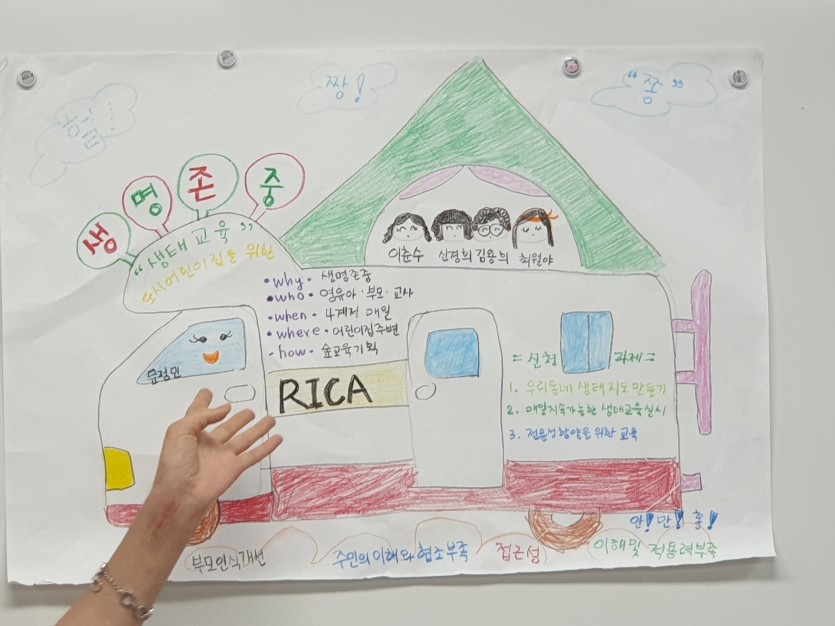 짱!
"쫌"
생 명 존 중
"생태교육"
도시어린이집을 위한
이춘수 신경희 김용희 최월야
• why • 생명존중
• who • 영유아 · 부모 · 교사
• when • 4계절 매일
• where • 어린이집주변
- how • 숲교육기획
문정민
RICA
= 실천 과제 =
1. 우리동네 생태 지도 만들기
2. 매일지속가능한 생태교육실시
3. 전문성함양을 위한 교육
안! 만! 홍!
부모인식개선
주민의 이해와 협조부족
접근성
이해및 적용력부족